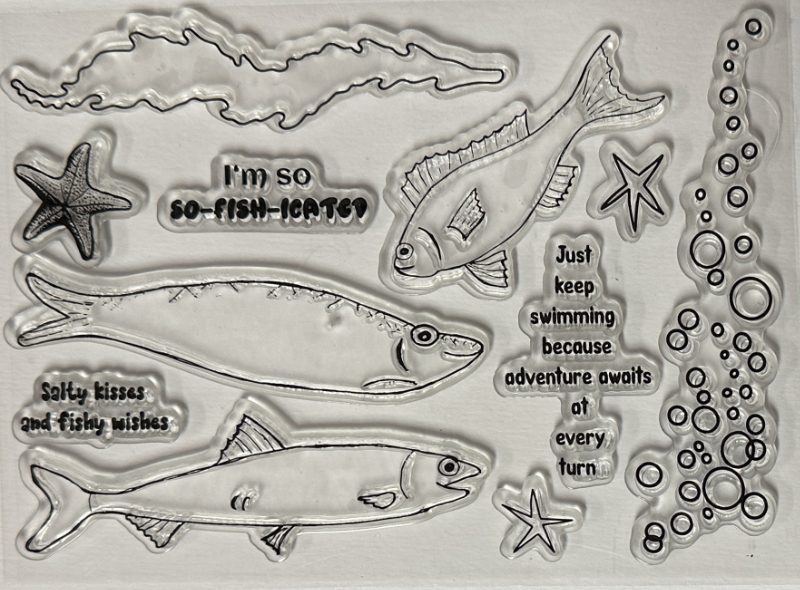 I'm so
SO-FISH-ICATED
Just
keep
swimming
because
adventure awaits
at
every
turn
Salty kisses
and fishy wishes